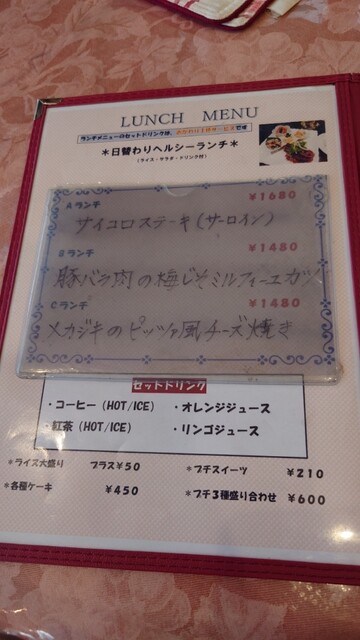 LUNCH MENU
ランチメニューのセットドリンクは、おかわり1杯サービスです
*日替わりヘルシーランチ*
(ライス・サラダ・ドリンク付)
Aランチ ¥1680
サイコロステーキ(サーロイン)
Bランチ ¥1480
豚バラ肉の梅じそミルフィーユカツ
Cランチ ¥1480
メカジキのピッツァ風チーズ焼き
セットドリンク
・コーヒー(HOT/ICE) ・オレンジジュース
・紅茶(HOT/ICE) ・リンゴジュース
*ライス大盛り プラス¥50 *プチスイーツ ¥210
*各種ケーキ ¥450 *プチ3種盛り合わせ ¥600